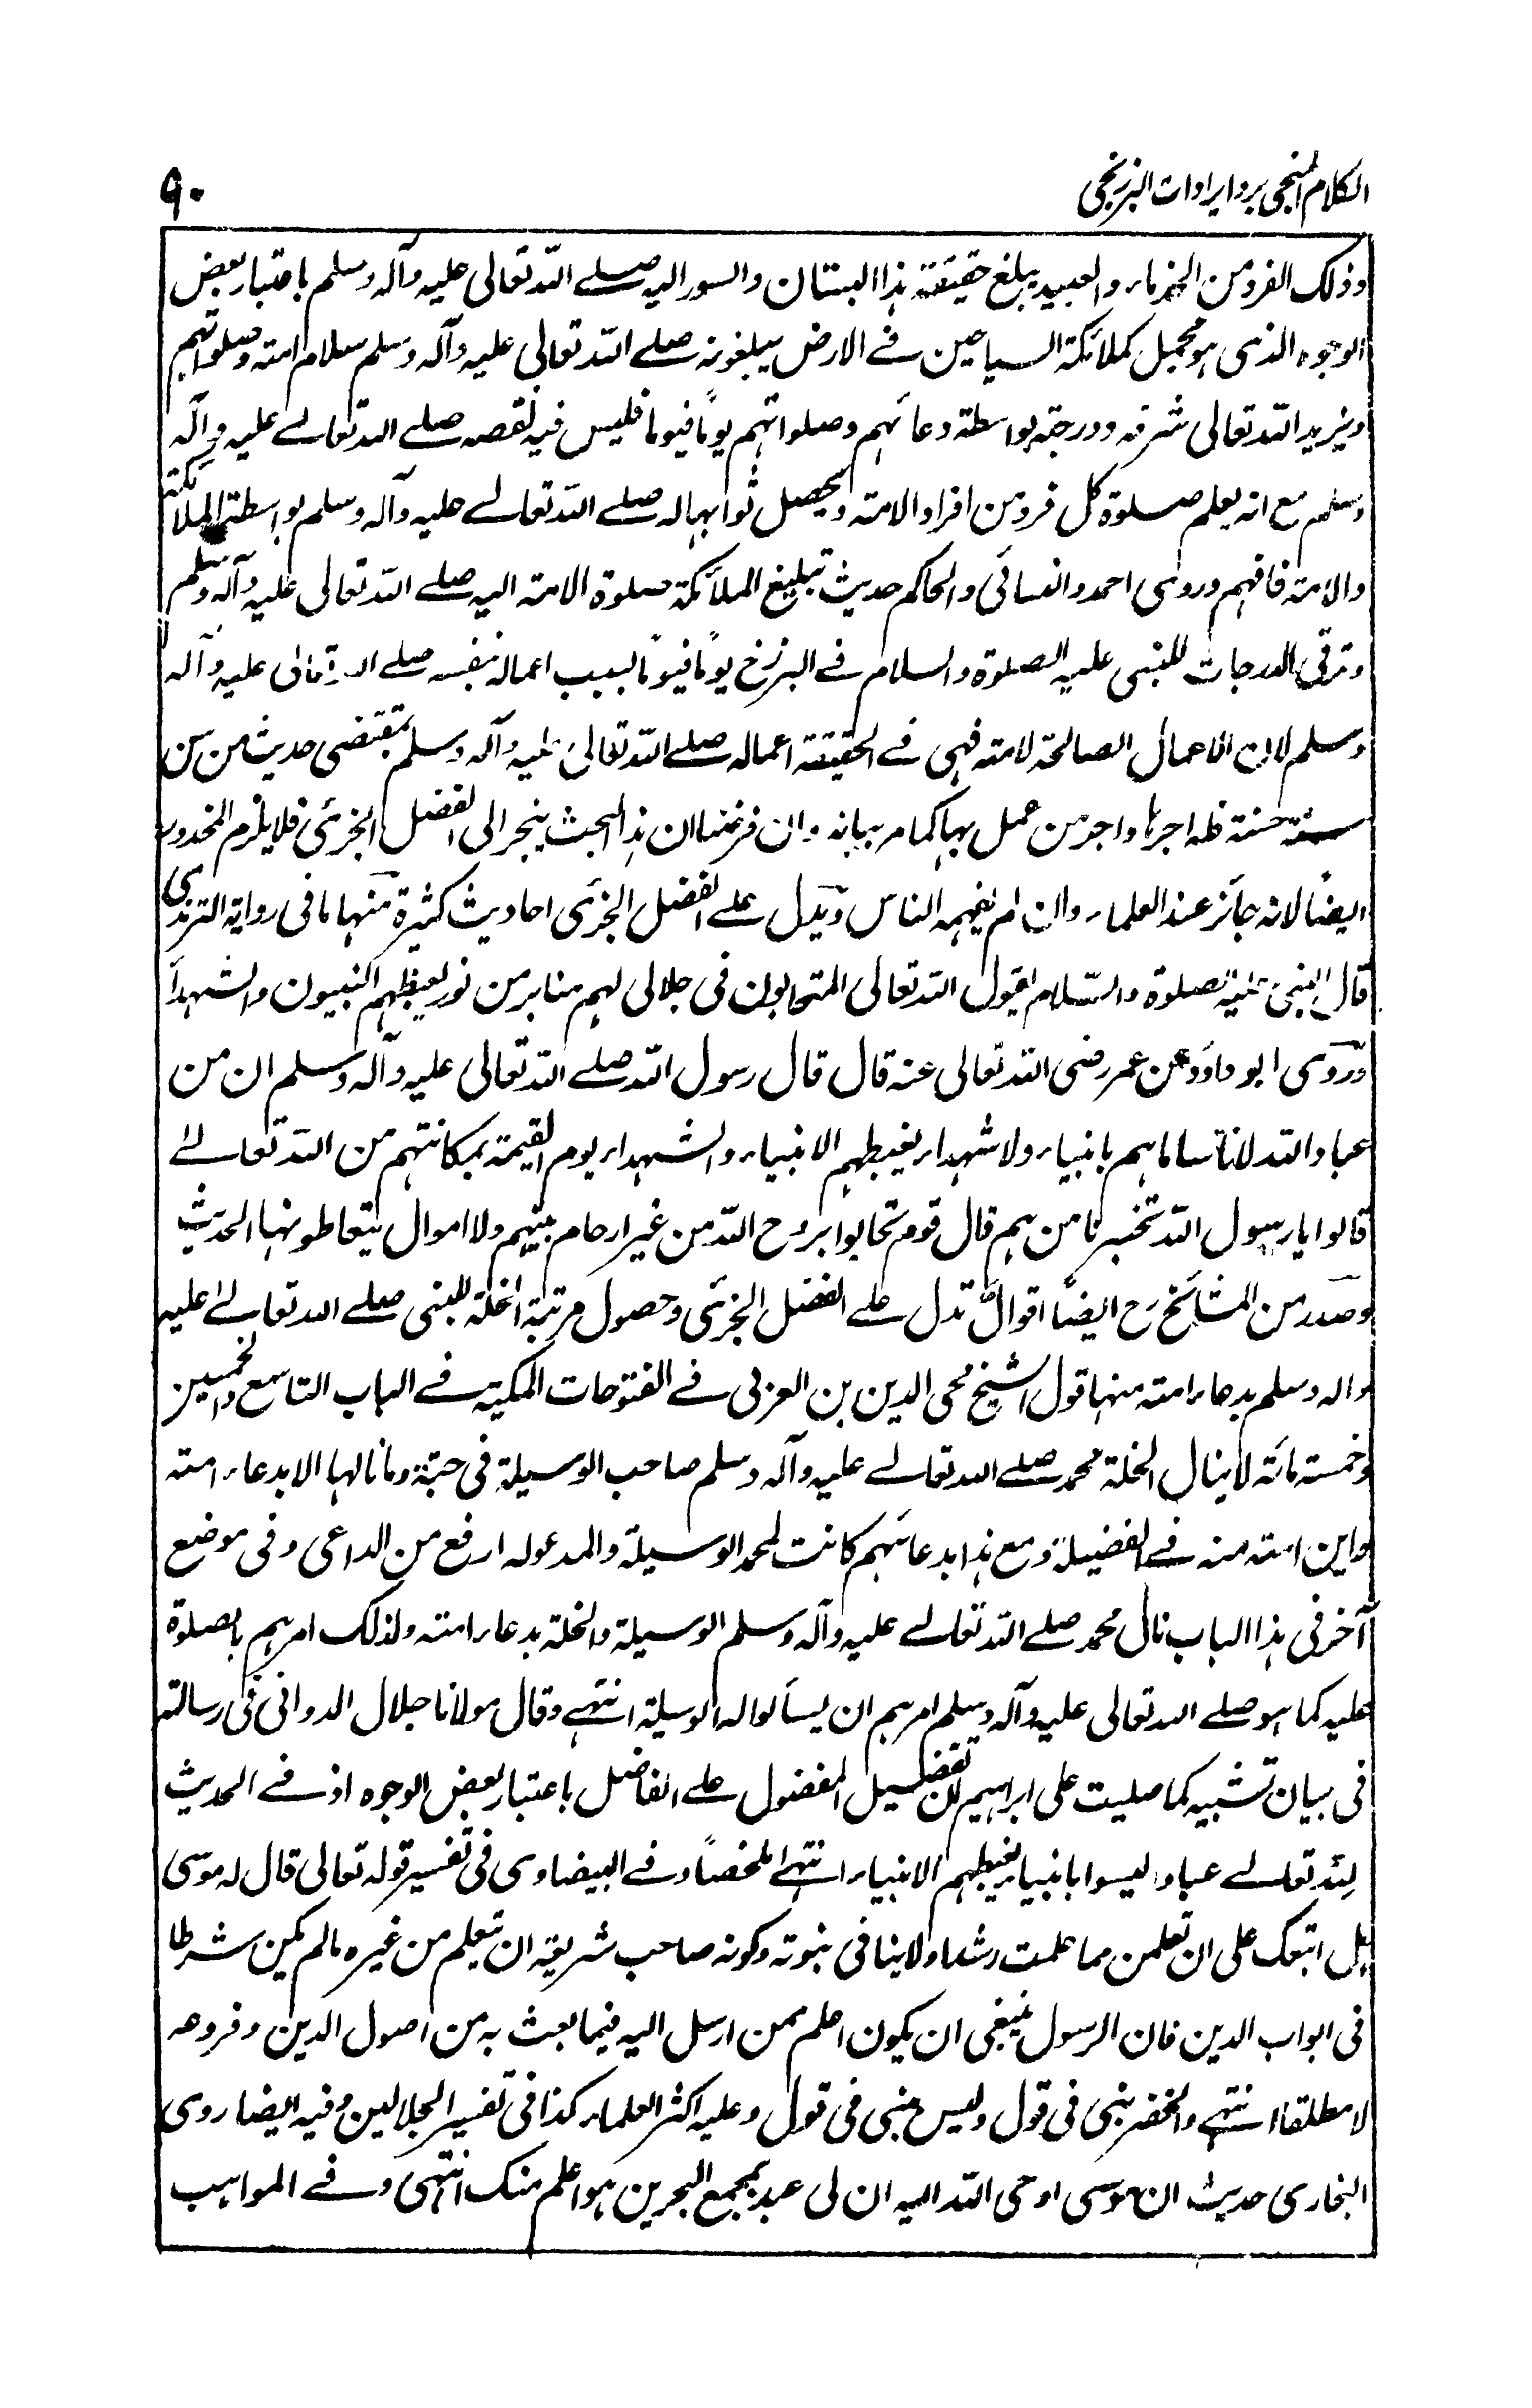 الكلام المنجي برد ايرادات البرزنجي
٩٠
وذلك الفرد من الخدماء والعبيد يبلغ حقيقة هذا البستان والسور اليه صلے الله تعالى عليه وآله وسلم باعتبار بعض
الوجوه الذى هو مجمل كملائكة السياحين فے الارض يبلغونه صلے الله تعالى عليه وآله وسلم سلام امته وصلواتهم
ويزيد الله تعالى شرفه ودرجته بواسطة دعائهم وصلواتهم يومًا فيومًا فليس فيه نقصه صلے الله تعالے عليه وآله
وسلم مع انه يعلم صلوة كل فرد من افراد الامة ويحصل ثوابها له صلے الله تعالے عليه وآله وسلم بواسطة الملائكة
والامة فافهم وروى احمد والنسائى والحاكم حديث تبليغ الملائكة صلوة الامة اليه صلے الله تعالى عليه وآله وسلم
وترقى الدرجات للنبى عليه الصلوة والسلام فے البرزخ يومًا فيومًا بسبب اعماله بنفسه صلے الله تعالى عليه وآله
وسلم لان الاعمال الصالحة لامته فهى فے الحقيقة اعماله صلے الله تعالى عليه وآله وسلم بمقتضى حديث من سن
سنة حسنة فله اجرها واجر من عمل بها كما مر بيانه وان فرضنا ان هذا البحث ينجر الى الفضل الجزئى فلا يلزم المحذور
ايضًا لانه جائز عند العلماء وان لم يفهمه الناس ويدل علے الفضل الجزئى احاديث كثيرة منها ما فى رواية الترمذى
قال النبى عليه الصلوة والسلام يقول الله تعالى المتحابون فى جلالى لهم منابر من نور يغبطهم النبيون والشهداء
وروى ابو داؤد عن عمر رضى الله تعالى عنه قال قال رسول الله صلے الله تعالى عليه وآله وسلم ان من
عباد الله لاناسا ما هم بانبياء ولا شهداء يغبطهم الانبياء والشهداء يوم القيمة بمكانتهم من الله تعالے
قالوا يا رسول الله تخبرنا من هم قال قوم تحابوا بروح الله من غير ارحام بينهم ولا اموال يتعاطونها الحديث
وصدر من المشائخ رح ايضًا اقوال تدل علے الفضل الجزئى وحصول مرتبة الخلة للنبى صلے الله تعالے عليه
واله وسلم بدعاء امته منها قول الشيخ محى الدين بن العربى فے الفتوحات المكية فے الباب التاسع والخمسين
وخمسة مائة لاينال الخلة محمد صلے الله تعالے عليه وآله وسلم صاحب الوسيلة فى جنته وما نالها الا بدعاء امته
واين امته منه فے الفضيلة ومع هذا بدعائهم كانت لمحمد الوسيلة والمدعو له ارفع من الداعى وفى موضع
آخر فى هذا الباب نال محمد صلے الله تعالے عليه وآله وسلم الوسيلة والخلة بدعاء امته ولذلك امرهم بالصلوة
عليه كما هو صلے الله تعالى عليه وآله وسلم امرهم ان يسألوا له الوسيلة انتهے وقال مولانا جلال الدوانى فى رسالته
فى بيان تشبيه كما صليت على ابراهيم لن تفضيل المفضول علے الفاضل باعتبار بعض الوجوه اذ فے الحديث
لله تعالے عباد ليسوا بانبياء يغبطهم الانبياء انتهے ملخصًا وفے البيضاوى فى تفسير قوله تعالى قال له موسى
هل اتبعك على ان تعلمن مما علمت رشدا ولا ينافى نبوته وكونه صاحب شريعة ان يتعلم من غيره مالم يكن شرطا
فى ابواب الدين فان الرسول ينبغى ان يكون اعلم ممن ارسل اليه فيما بعث به من اصول الدين وفروعه
لا مطلقا انتهے والخضر نبى فى قول وليس بنبى فى قول وعليه اكثر العلماء كذا فى تفسير الجلالين وفيه ايضا روى
البخارى حديث ان موسى اوحى الله اليه ان لى عبد بمجمع البحرين هو اعلم منك انتهى وفے المواهب